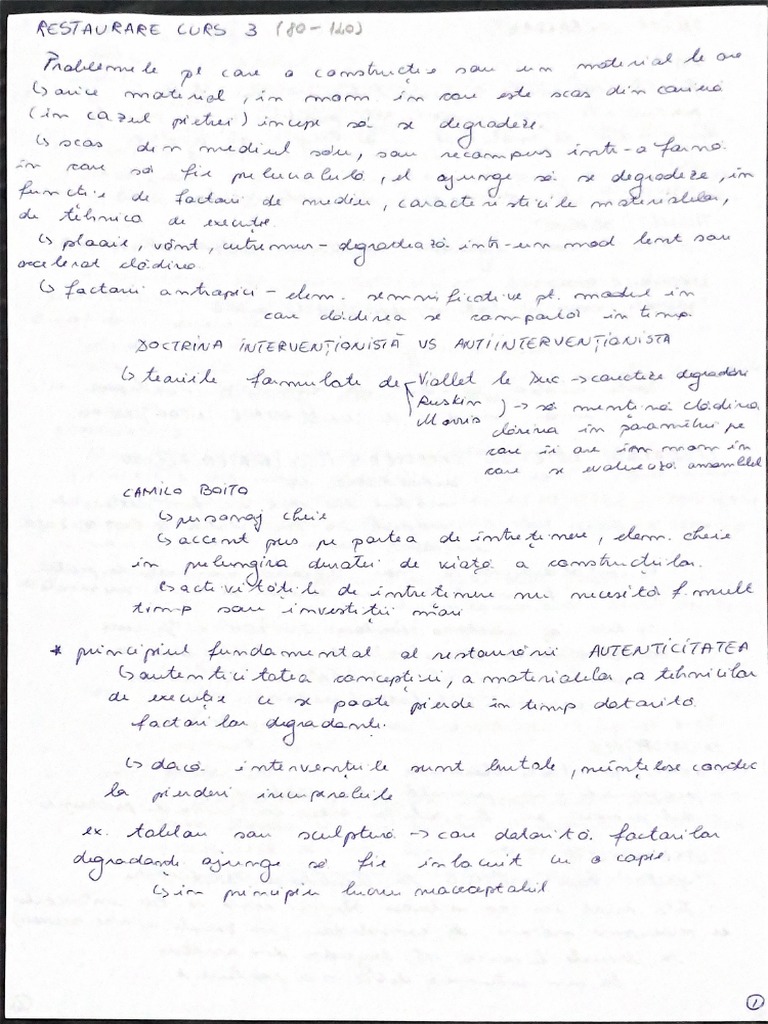 RESTAURARE CURS 3 (80-120)
Problemele pe care o construcție sau un material le are
↳ orice material, în mom. în care este scos din carieră
(în cazul pietrei) începe să se degradeze.
↳ scos din mediul său, sau recompus într-o formă
în care să fie prelucrabilă, el ajunge să se degradeze, în
funcție de factori de mediu, caracteristicile materialelor,
de tehnica de execuție.
↳ ploaie, vânt, cutremur - degradează într-un mod lent sau
accelerat clădirea.
↳ factorii antropici - elem. semnificative pt. modul în
care clădirea se comportă în timp.
DOCTRINA INTERVENȚIONISTĂ VS ANTIINTERVENȚIONISTA
↳ teoriile formulate de Viollet le Duc → corecteze degradări
Ruskin ) → să mențină clădirea
Morris clădirea în parametrii pe
care îi are în mom în
care se evaluează ansamblul
CAMILO BOITO
↳ personaj cheie
↳ accent pus pe partea de întreținere, elem. cheie
în prelungirea duratei de viață a construcțiilor.
↳ activitățile de întreținere nu necesită f. mult
timp sau investiții mari
* principiul fundamental al restaurării AUTENTICITATEA
↳ autenticitatea concepției, a materialelor, a tehnicilor
de execuție ce se poate pierde în timp datorită
factorilor degradanți.
↳ dacă intervențiile sunt brutale, neînțelese conduc
la pierderi irecuperabile
ex. tablou sau sculptură → care datorită factorilor
degradanți ajunge să fie înlocuit cu o copie
↳ în principiu lucru inacceptabil
1